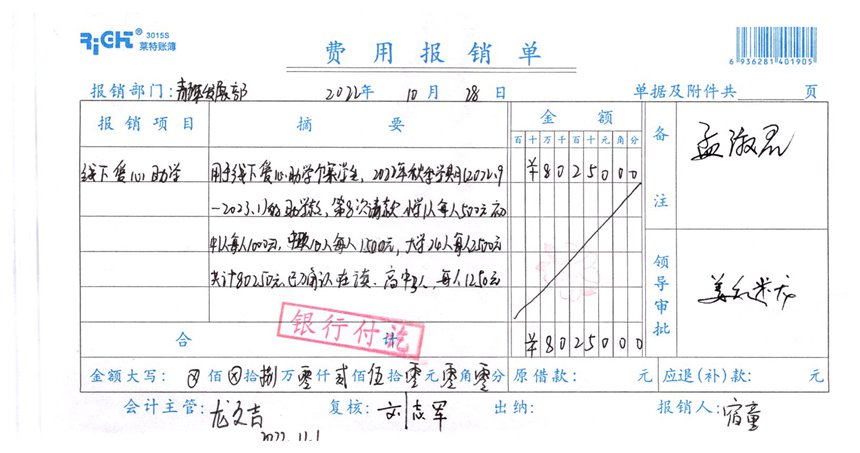 RiGHT® 3015S
莱特账簿
费用报销单
6 936281 401905
报销部门: 发展部 2022年 10月 28日 单据及附件共 页
报销项目 摘要 金额 备注
百十万千百十元角分
线下爱心助学 用于线下爱心助学个案学生, 2022年秋季学期(2022.9 ¥8025000
-2023.1)的助学款, 第8次请款 小学1人每人500元 初
中1人每人1000元, 10人每人1500元, 大学24人每人2500元
共计80250元, 已确认在读. 高中3人, 每人1250元
领导审批
银行付讫
合计 ¥8025000
金额大写: ⊗佰⊗拾捌万零仟贰佰伍拾零元零角零分 原借款: 元 应退(补)款: 元
会计主管: 龙文吉 复核: 刘志军 出纳: 报销人: 宿童
2022.11.1